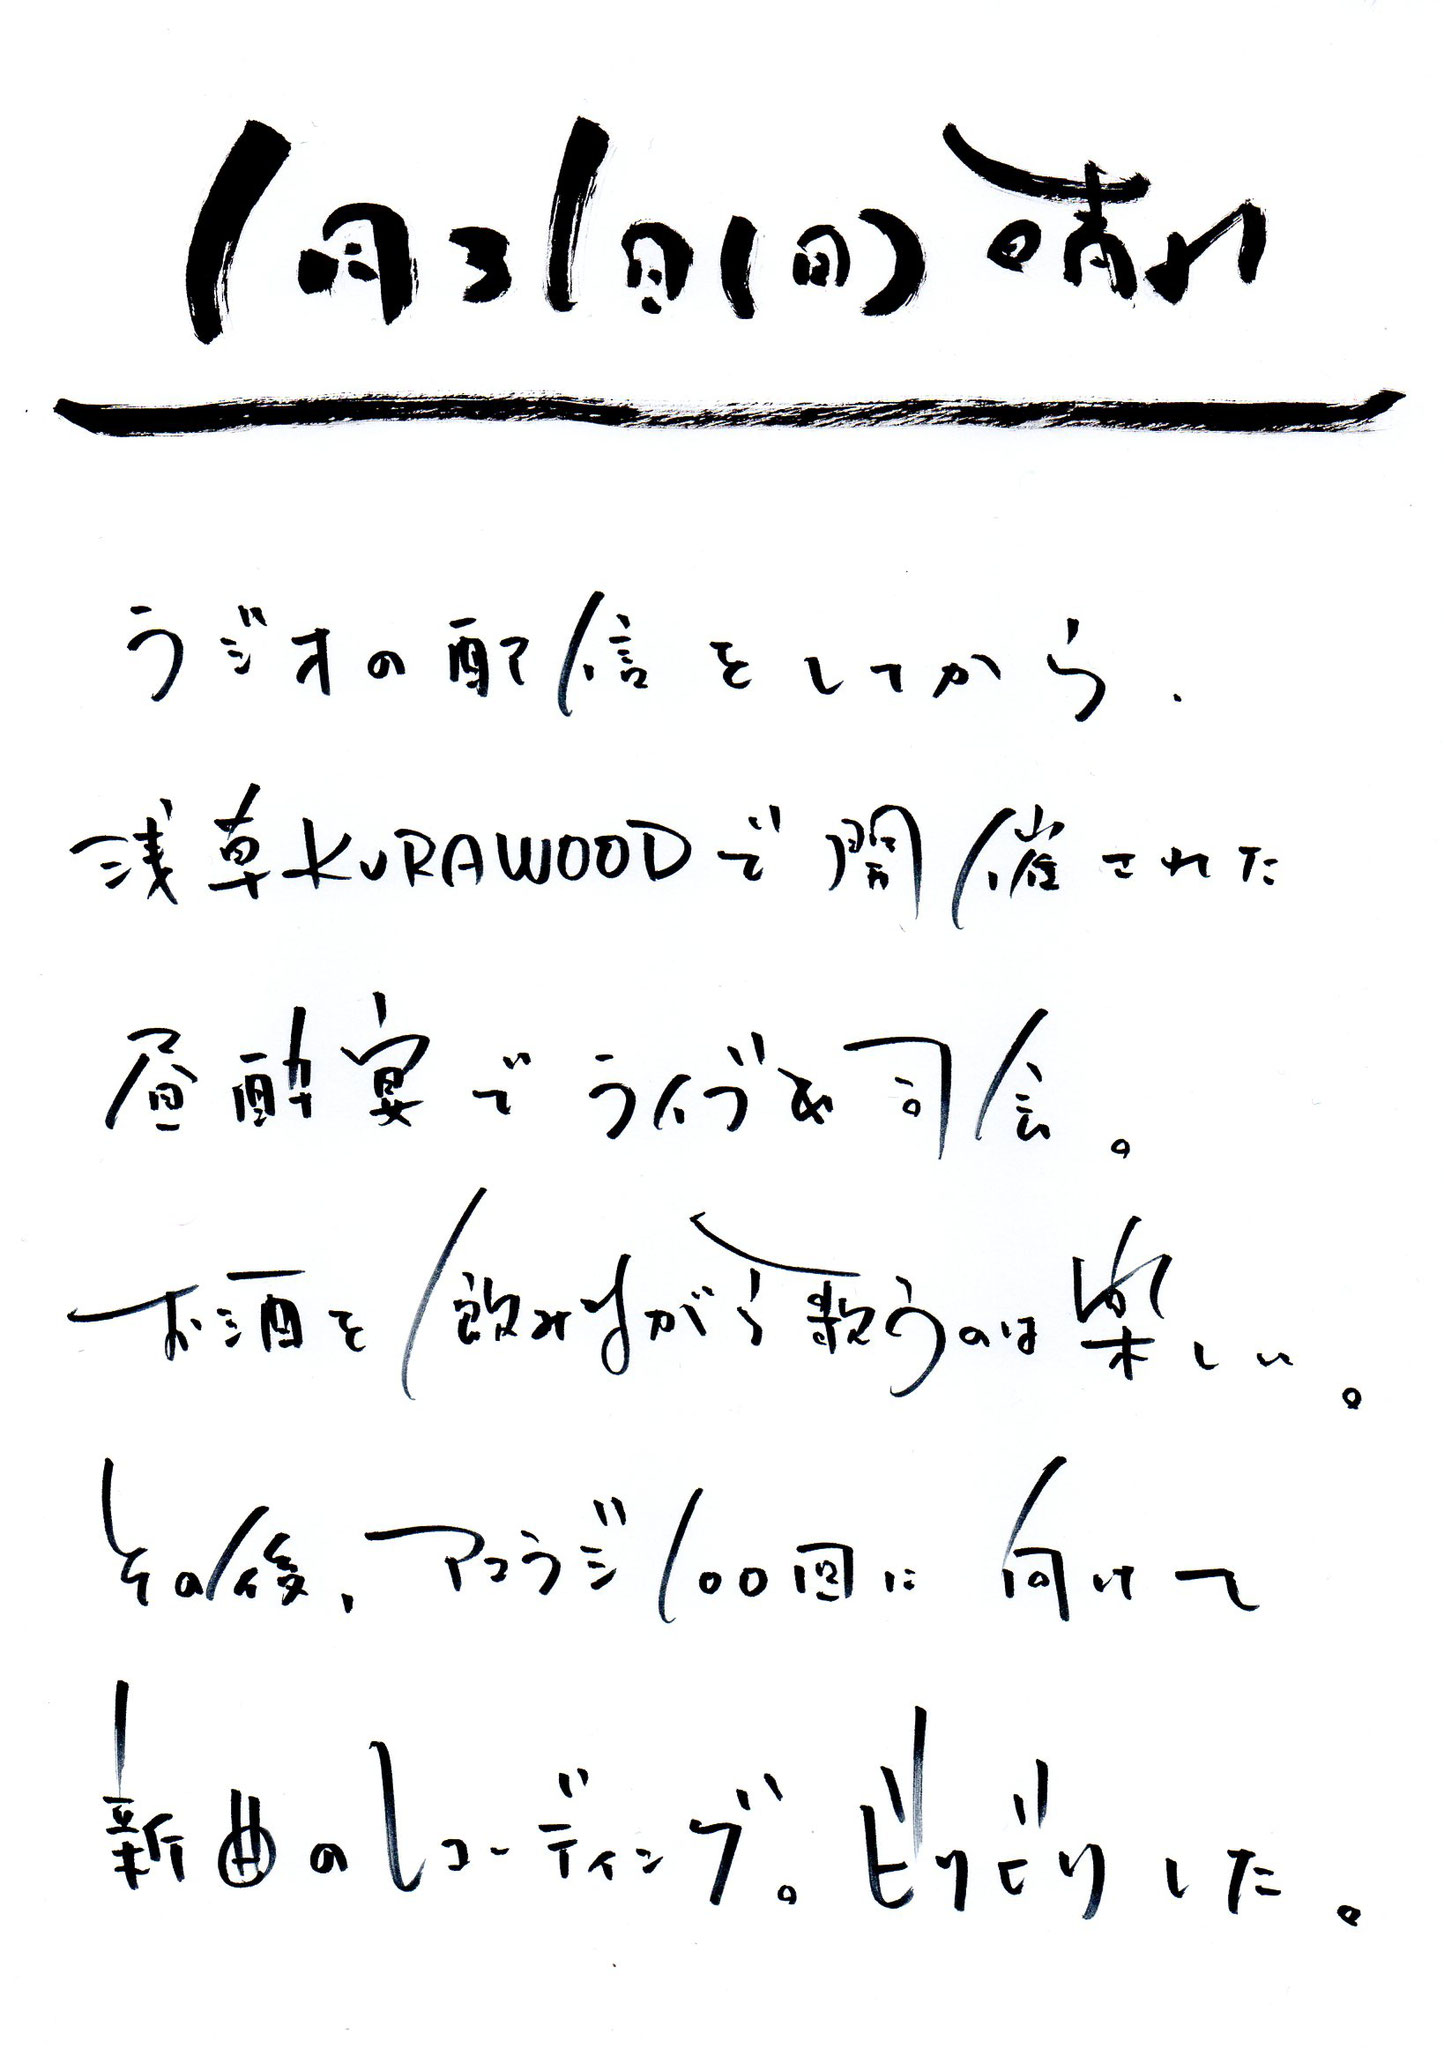 1月31日(日)晴れ
ラジオの配信をしてから、
浅草KURAWOODで開催された
昼酔宴でライブ&司会。
お酒を飲みながら歌うのは楽しい。
その後、アコラジ100回に向けて
新曲のレコーディング。ビリビリした。